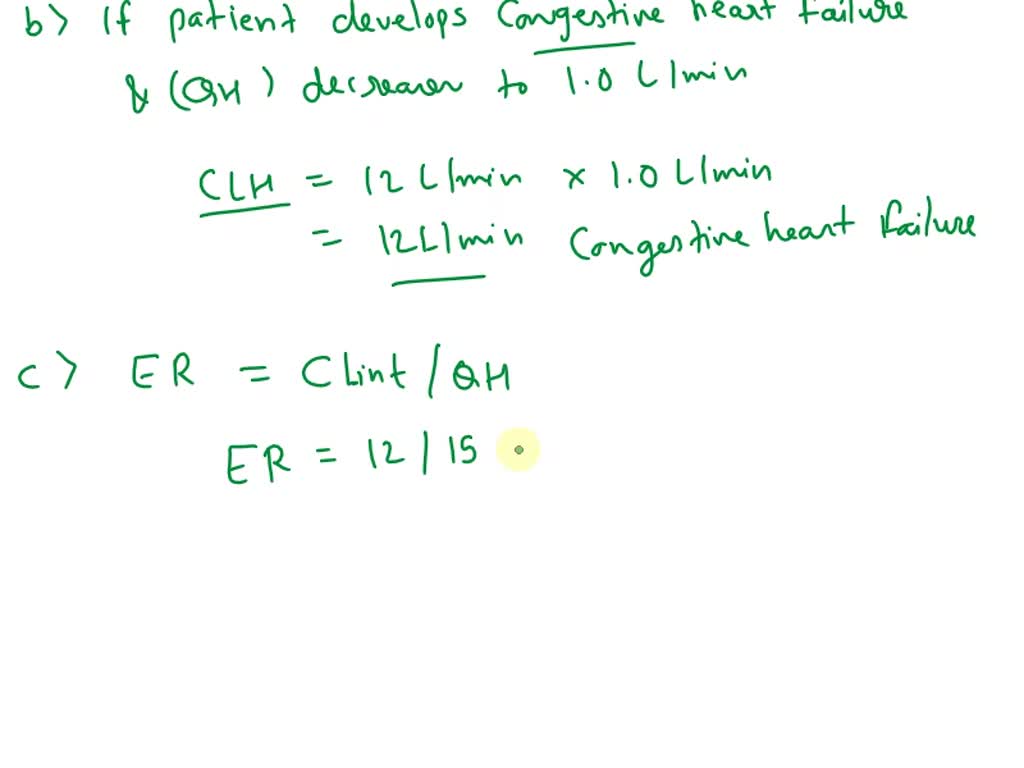 b> If patient develops Congestive heart failure
& (QH) decreases to 1.0 L/min
CLH = 12 L/min x 1.0 L/min
= 12 L/min Congestive heart failure
c> ER = CLint / QH
ER = 12 / 15